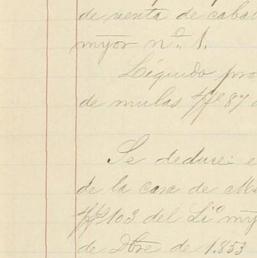 de venta de cabal
myor nº 1.
Líquido pro
de mulas ff 87
Se deduce: e
de la casa de M
ff 103 del Liº my
de Dbre de 1.853